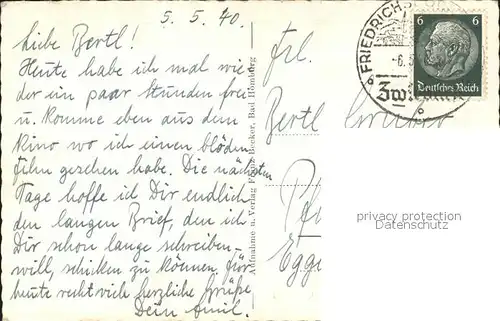 5. 5. 40.
Liebe Bertl!
Heute habe ich mal wie-
der ein paar Stunden frei
u. komme eben aus dem
Kino wo ich einen blöden
film gesehen habe. Die nächsten
Tage hoffe ich Dir endlich
den langen Brief, den ich
Dir schon lange schreiben
will, schicken zu können. für
heute recht viele herzliche Grüße
Dein Amil.
Aufnahme u. Verlag Franz Becker, Bad Homburg
Frl.
Bertl
Pf
Egge
FRIEDRICHS
-6.5
6 6
Deutsches Reich
privacy protection
Datenschutz